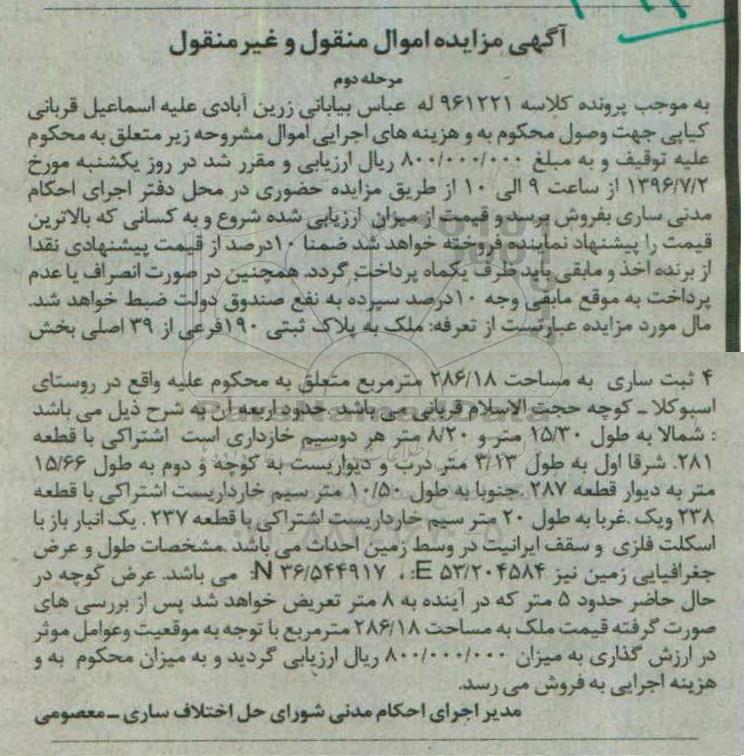 آگهی مزایده اموال منقول و غیر منقول
مرحله دوم
به موجب پرونده کلاسه ۹۶۱۲۲۱ له عباس بیابانی زرین آبادی علیه اسماعیل قربانی
کیاپی جهت وصول محکوم به و هزینه های اجرایی اموال مشروحه زیر متعلق به محکوم
علیه توقیف و به مبلغ ۸۰۰/۰۰۰/۰۰۰ ریال ارزیابی و مقرر شد در روز یکشنبه مورخ
۱۳۹۶/۷/۲ از ساعت ۹ الی ۱۰ از طریق مزایده حضوری در محل دفتر اجرای احکام
مدنی ساری بفروش برسد و قیمت از میزان ارزیابی شده شروع و به کسانی که بالاترین
قیمت را پیشنهاد نماینده فروخته خواهد شد ضمنا ۱۰درصد از قیمت پیشنهادی نقدا
از برنده اخذ و مابقی باید ظرف یکماه پرداخت گردد. همچنین در صورت انصراف یا عدم
پرداخت به موقع مابقی وجه ۱۰درصد سپرده به نفع صندوق دولت ضبط خواهد شد.
مال مورد مزایده عبارتست از تعرفه: ملک به پلاک ثبتی ۱۹۰فرعی از ۳۹ اصلی بخش
۴ ثبت ساری به مساحت ۲۸۶/۱۸ مترمربع متعلق به محکوم علیه واقع در روستای
اسبوکلا ـ کوچه حجت الاسلام قربانی می باشد. حدود اربعه آن به شرح ذیل می باشد
: شمالا به طول ۱۵/۳۰ متر و ۸/۲۰ متر هر دوسیم خارداری است اشتراکی با قطعه
۲۸۱. شرقا اول به طول ۳/۱۳ متر درب و دیواریست به کوچه و دوم به طول ۱۵/۶۶
متر به دیوار قطعه ۲۸۷ .جنوبا به طول ۱۰/۵۰ متر سیم خارداریست اشتراکی با قطعه
۲۳۸ ویک .غربا به طول ۲۰ متر سیم خارداریست اشتراکی با قطعه ۲۳۷ . یک انبار باز با
اسکلت فلزی و سقف ایرانیت در وسط زمین احداث می باشد .مشخصات طول و عرض
جغرافیایی زمین نیز E ۵۳/۲۰۴۵۸۴: ، N ۳۶/۵۴۴۹۱۷: می باشد. عرض کوچه در
حال حاضر حدود ۵ متر که در آینده به ۸ متر تعریض خواهد شد پس از بررسی های
صورت گرفته قیمت ملک به مساحت ۲۸۶/۱۸ مترمربع با توجه به موقعیت وعوامل موثر
در ارزش گذاری به میزان ۸۰۰/۰۰۰/۰۰۰ ریال ارزیابی گردید و به میزان محکوم به و
هزینه اجرایی به فروش می رسد.
مدیر اجرای احکام مدنی شورای حل اختلاف ساری ــ معصومی